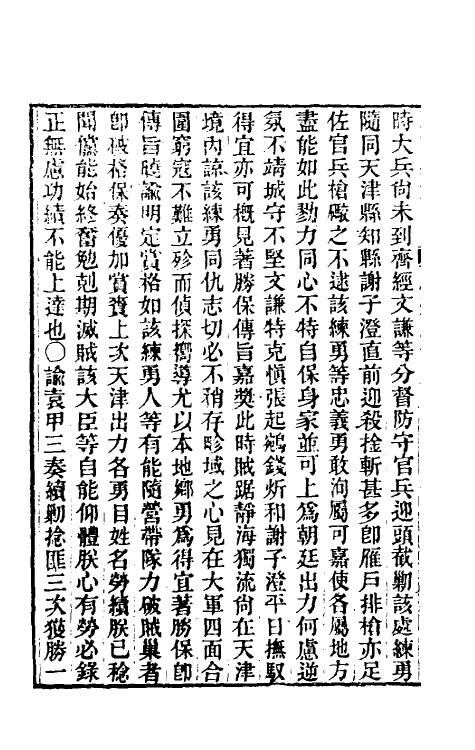 時大兵尙未到齊經文謙等分督防守官兵迎頭截勦該處練勇
隨同天津縣知縣謝子澄直前迎殺捡斬甚多卽雁戶排槍亦足
佐官兵槍礮之不逮該練勇等忠義勇敢洵屬可嘉使各屬地方
盡能如此勠力同心不特自保身家並可上爲朝廷出力何慮逆
氛不靖城守不堅文謙特克愼張起鵷錢炘和謝子澄平日撫馭
得宜亦可概見著勝保傳旨嘉奬此時賊踞靜海獨流尙在天津
境內諒該練勇同仇志切必不稍存畛域之心見在大軍四面合
圍窮寇不難立殄而偵探嚮導尤以本地鄕勇爲得宜著勝保卽
傳旨曉諭明定賞格如該練勇人等有能隨營帶隊力破賊巢者
卽破格保奏優加賞賚上次天津出力各勇目姓名勞績朕已稔
聞儻能始終奮勉剋期滅賊該大臣等自能仰體朕心有勞必錄
正無慮功績不能上達也〇諭袁甲三奏續勦捻匪三次獲勝一